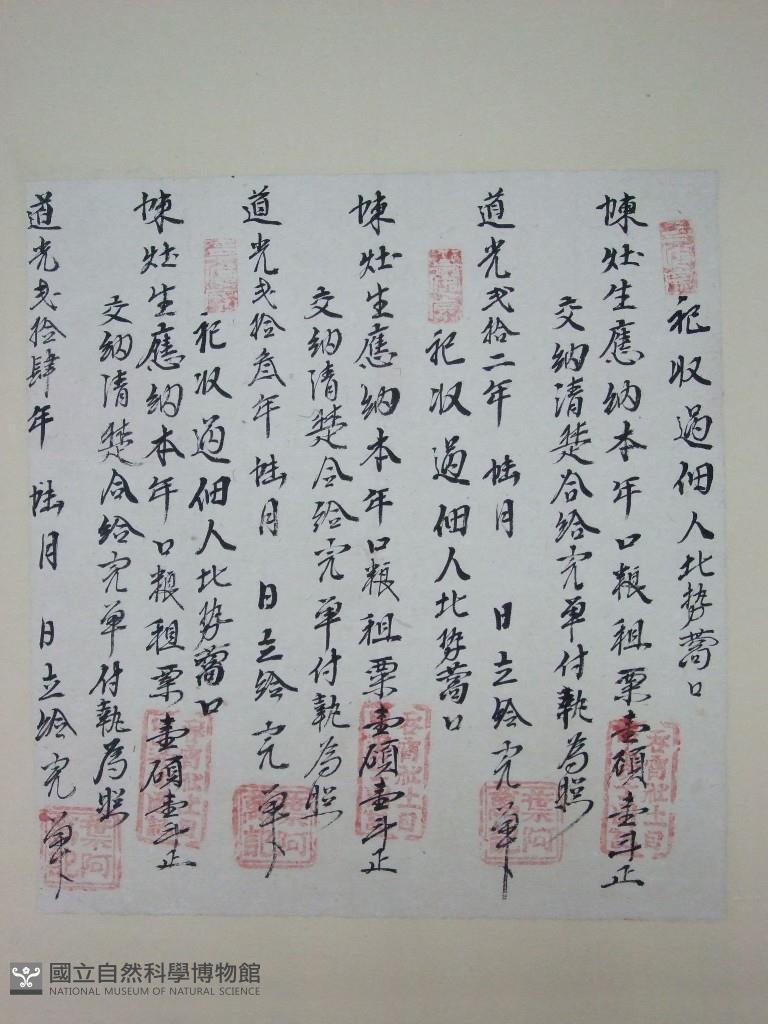 記收過佃人北勢蒿口
陳灶生應納本年口粮租粟壹碩壹斗正
交納清楚合給完单付執為照
道光弍拾二年 陸月 日立給完单
記收過佃人北势蒿口
陳灶生應納本年口粮租粟壹碩壹斗正
交納清楚合給完单付執為照
道光弍拾叁年 陸月 日立給完单
記收過佃人北势蒿口
陳灶生應納本年口粮租粟壹碩壹斗正
交納清楚合給完单付執為照
道光弍拾肆年 陸月 日立給完单
國立自然科學博物館
NATIONAL MUSEUM OF NATURAL SCIENCE